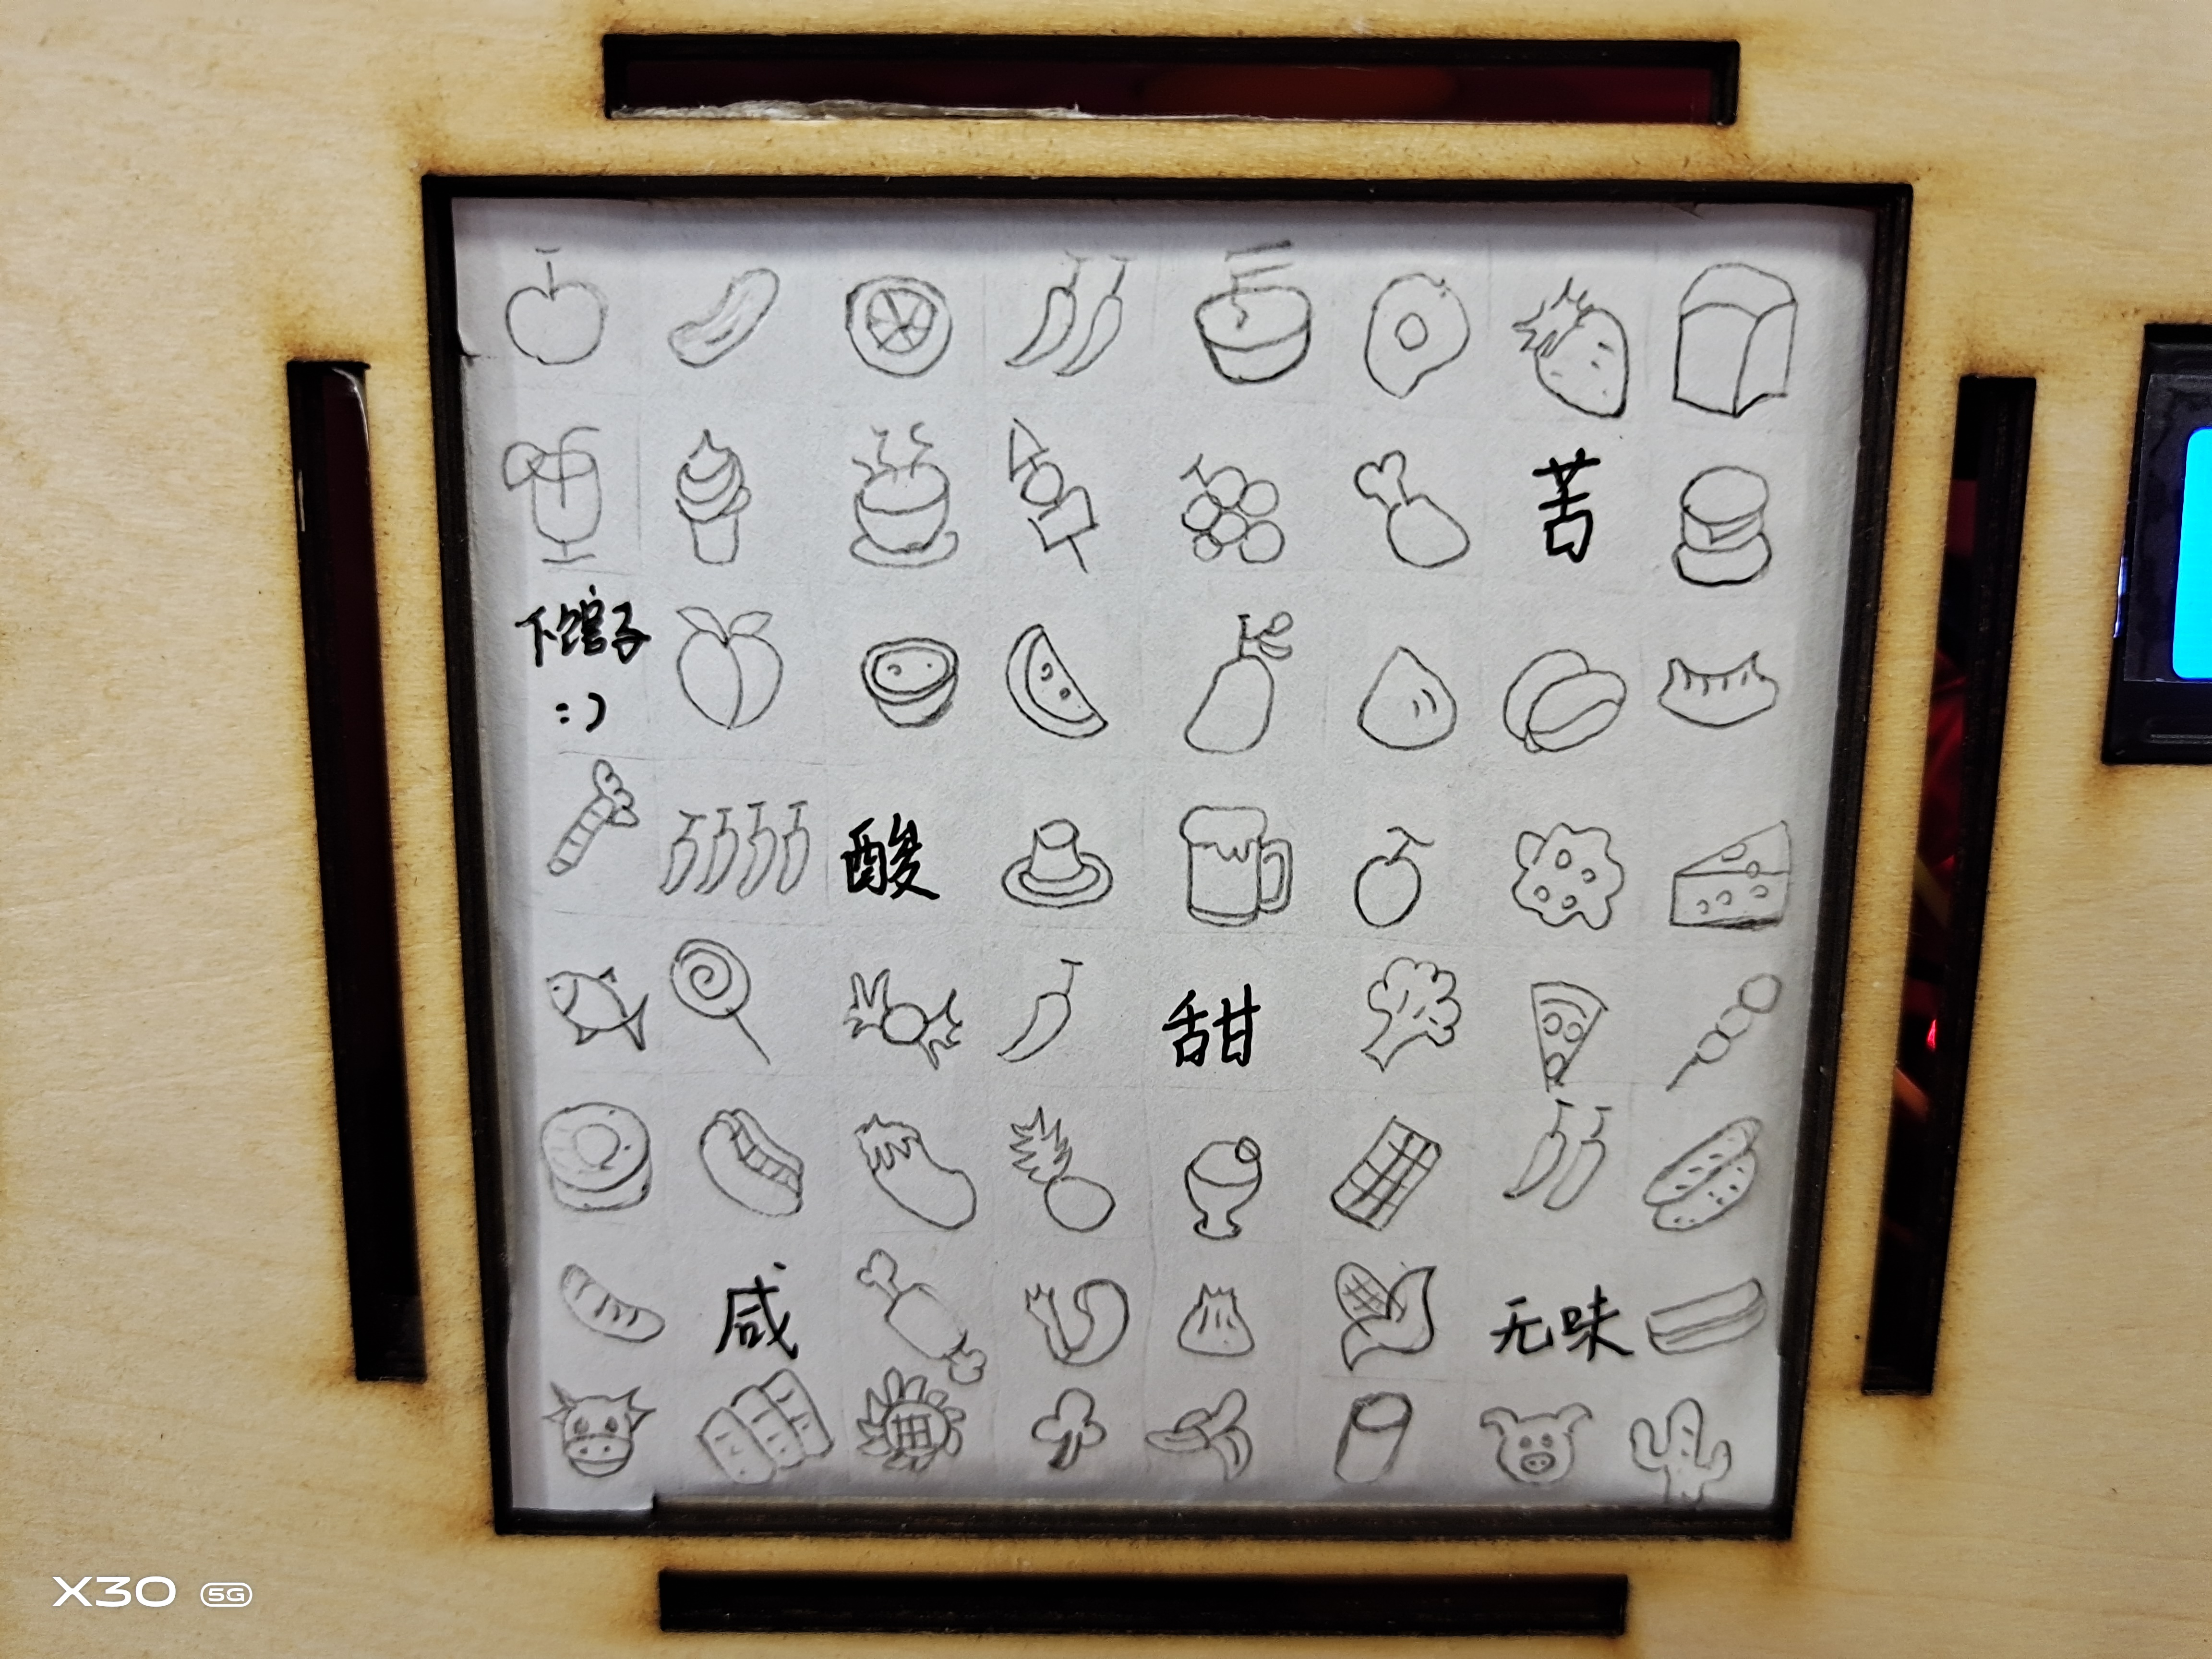 苦
下馆子
:)
酸
甜
咸
无味
X30 5G